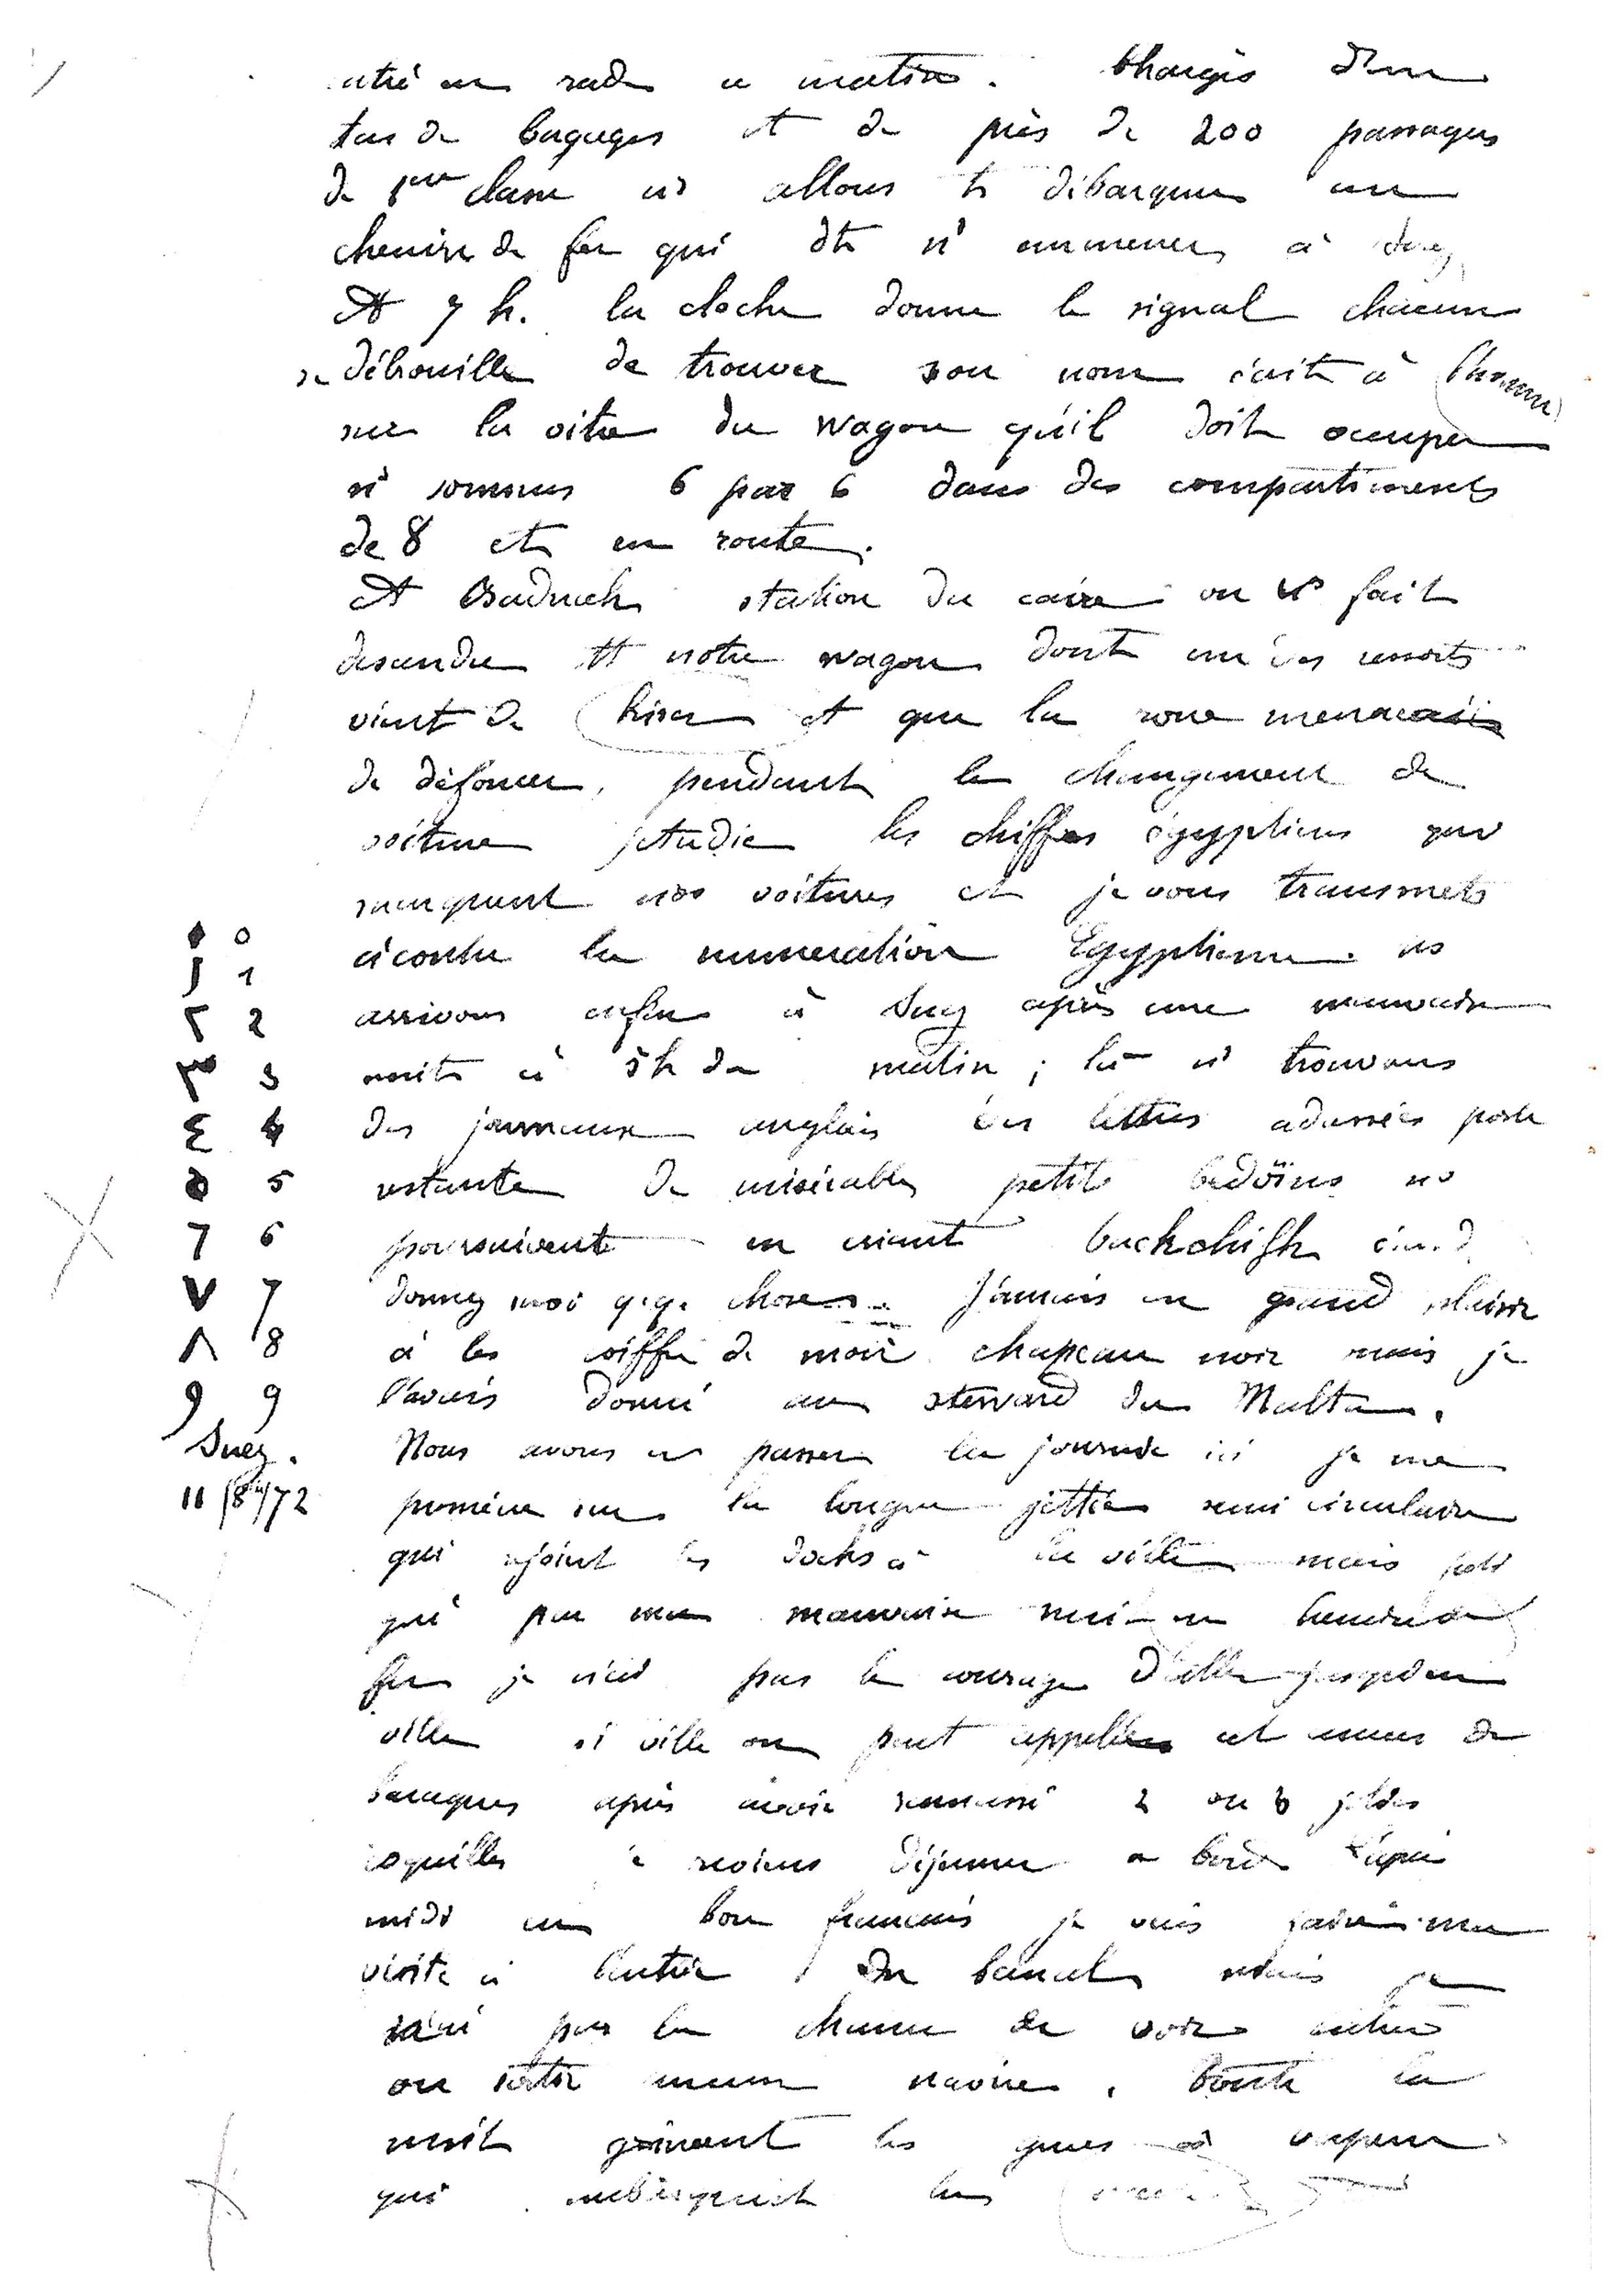 entré en rade ce matin. Chargés d'un
tas de bagages et de près de 200 passagers
de 1ere classe ns allons t débarquer un
chemin de fer qui dt ns emmener à Suez
A 7 h. la cloche donne le signal chacun
se débrouille de trouver son nom écrit à
sur la vitre du wagon qu'il doit occuper
ns sommes 6 par 6 dans des compartiments
de 8 et en route.
A station du Caire on ns fait
descendre tt notre wagon dont un des ressorts
vient de briser et que la roue menacait
de défoncer, pendant le changement de
voiture j'étudie les chiffres égyptiens qui
marquent nos voitures et je vous transmets
٠ 0 ci contre la numeration Egyptienne. ns
١ 1
٢ 2 arrivons enfin à Suez après une mauvaise
٣ 3 nuit à 5h du matin ; là ns trouvons
٤ 4 des journaux anglais des lettres adressées poste
٥ 5 restante de misérables petits bedöins ns
٦ 6 poursuivent en criant backchish
٧ 7 donnez moi q.q. chose. J'aurais eu grand plaisir
٨ 8 à les coiffer de mon chapeau noir mais je
٩ 9 l'avais donné au steward du Malta.
Suez. Nous avons à passer la journée ici je me
11/8/72 promène sur la longue jettée semi circulaire
qui rejoint les docks à la ville mais
par une mauvaise nuit en chemin de
fer je n'ai pas le courage d'aller jusqu'en
ville si ville on peut appeller cet amas de
baraques après avoir ramassé 2 ou 3 jolies
coquilles je reviens déjeuner a bord l'après
midi en bon francais je vais faire une
visite à l'entrée du Canal mais je
n'ai pas la chance de voir entrer
ou sortir aucun navire. Toute la
nuit grincent les grues à vapeur
qui les